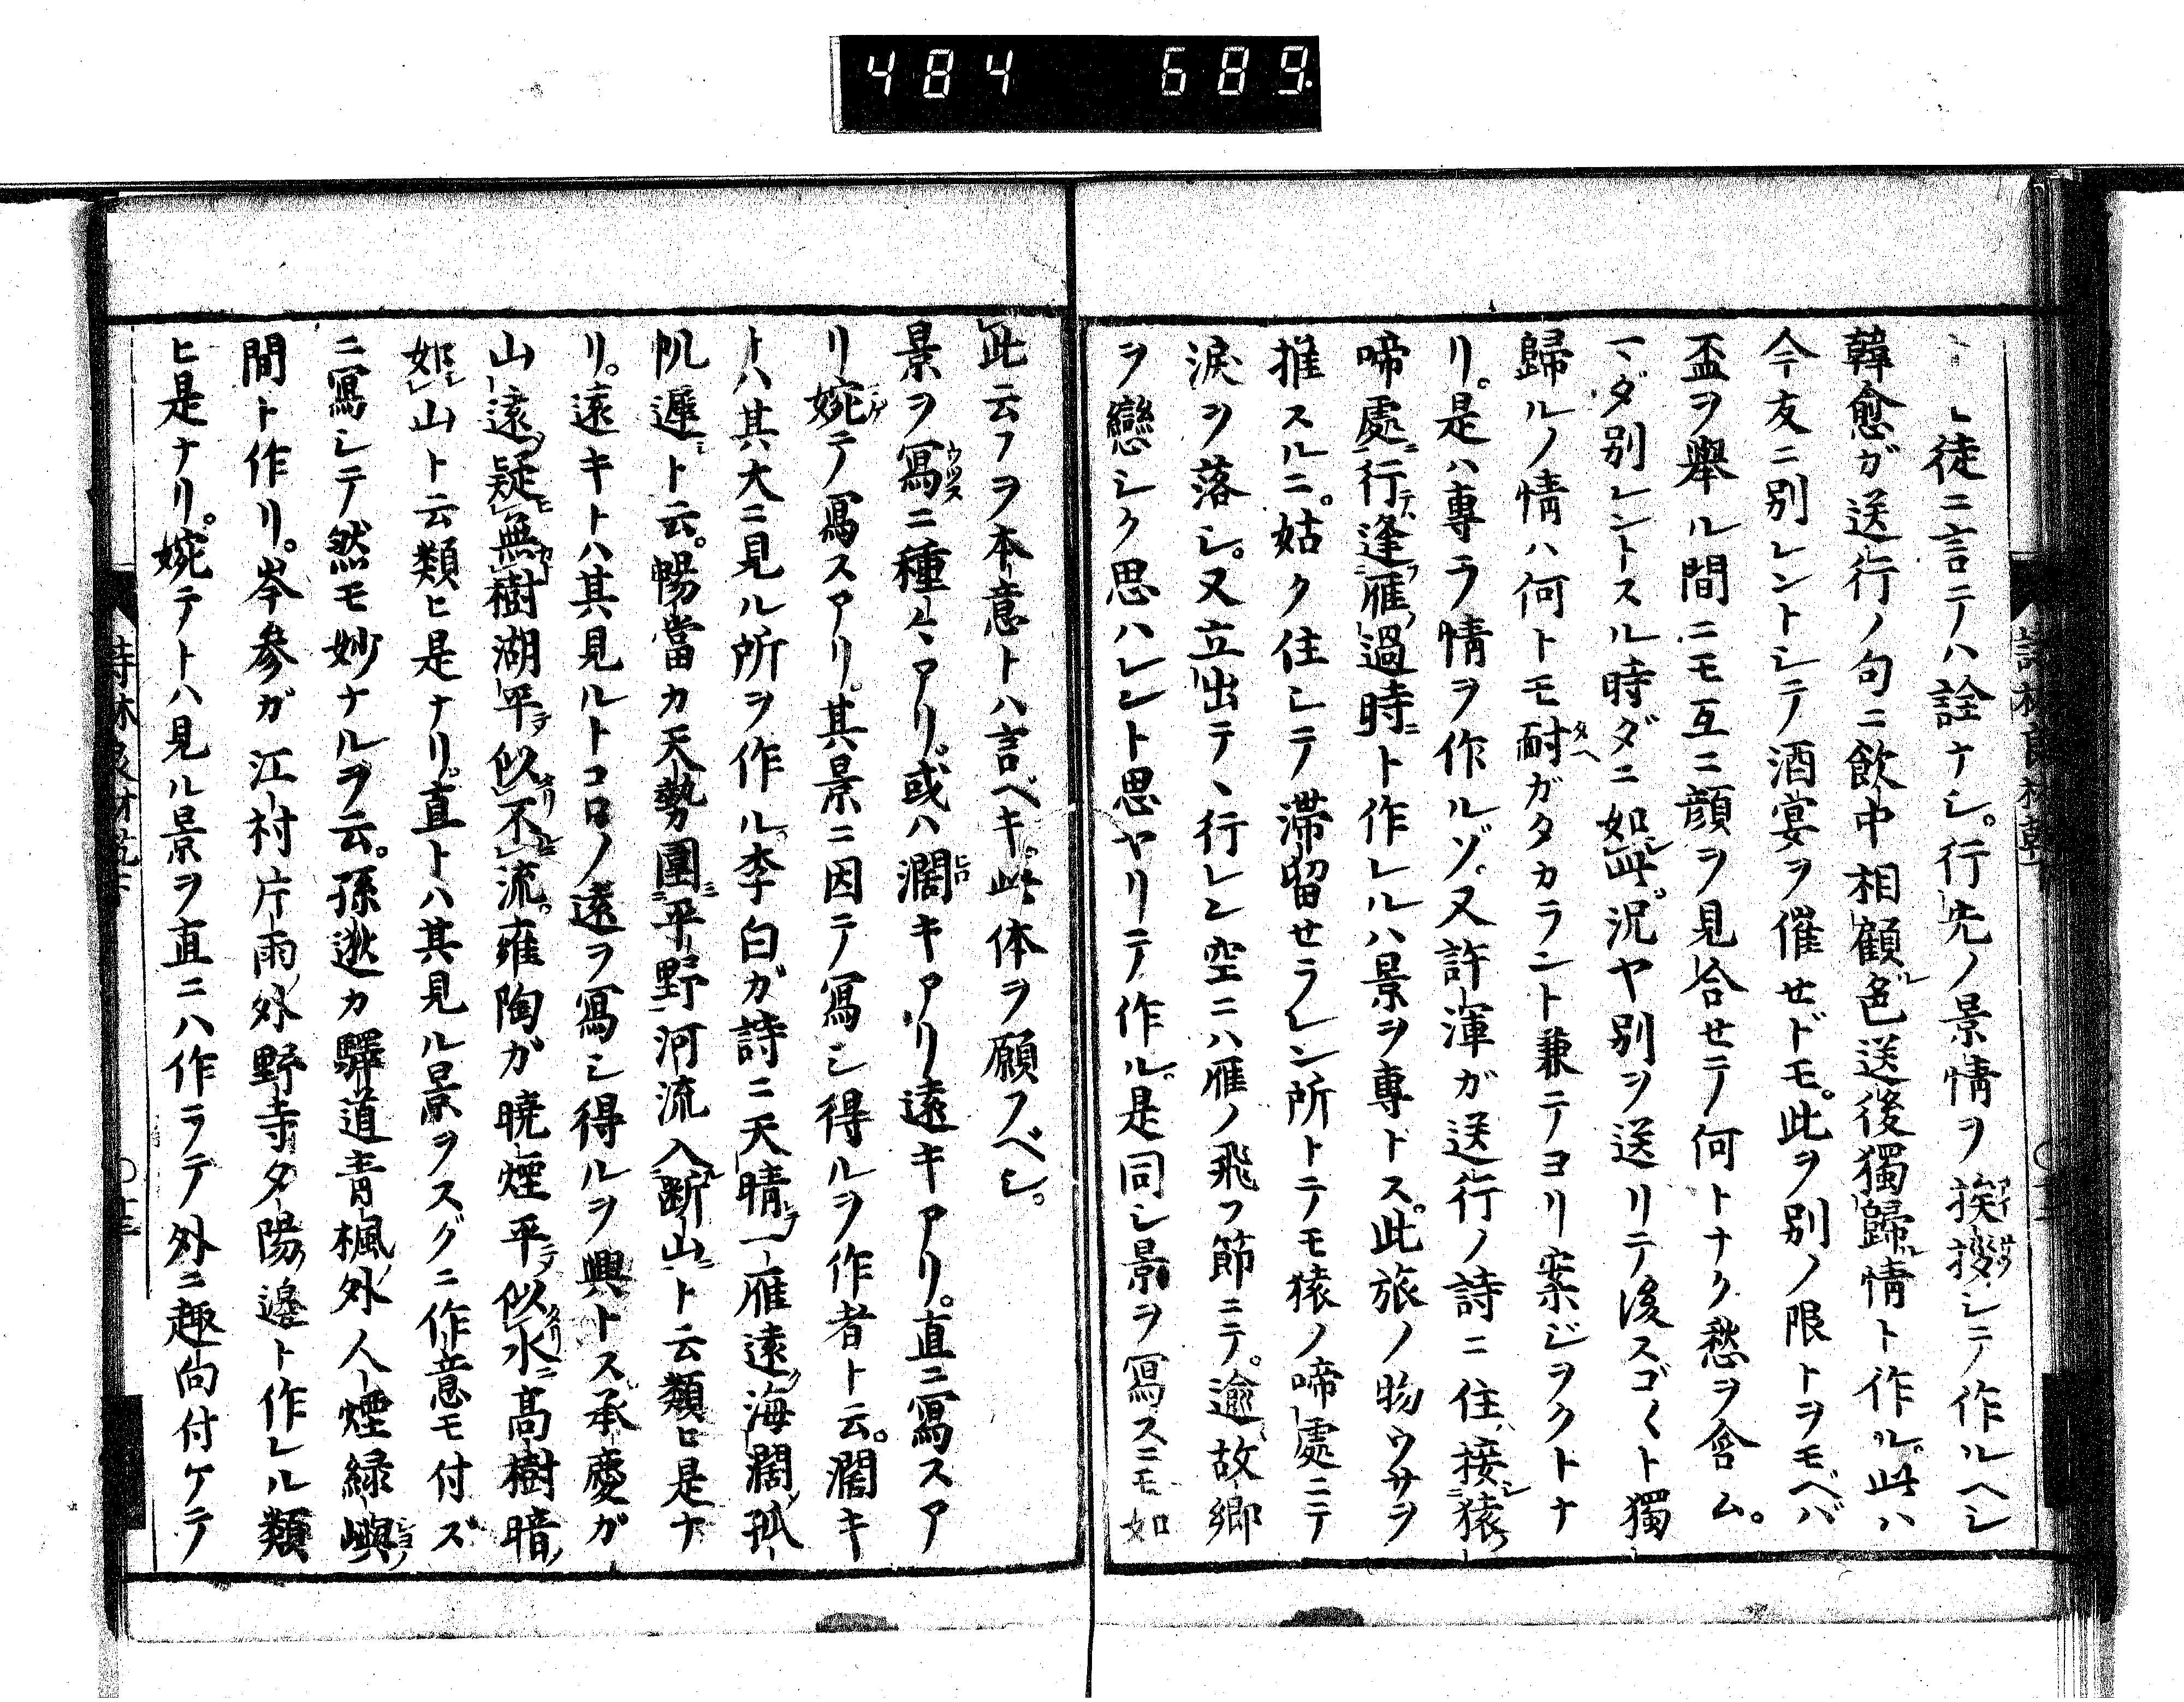 484 689.
ヽ徒ニ言テハ詮ナシ。行先ノ景情ヲ挨拶シテ作ルヘシ
韓愈ガ送行ノ句ニ飲中相顧色送後獨歸情ト作ル。此ハ
今友ニ別レントシテ酒宴ヲ催セドモ。此ヲ別ノ限トヲモヘバ
盃ヲ舉ル間ニモ互ニ顔ヲ見合セテ何トナク愁ヲ含ム。
マダ別レントスル時ダニ如此。況ヤ別ヲ送リテ後スゴ〱ト獨
歸ルノ情ハ何トモ耐ガタカラント兼テヨリ案ジヲクトナ
リ。是ハ專ラ情ヲ作ルゾ。又許渾ガ送行ノ詩ニ住接猿
啼處行逢雁過時ト作レルハ景ヲ專トス。此旅ノ物ウサヲ
推スルニ。姑ク住シテ滞留セラレン所トテモ猿ノ啼處ニテ
淚ヲ落シ。又立出テヽ行レン空ニハ雁ノ飛フ節ニテ。逾故郷
ヲ戀シク思ハレント思ヤリテ作ル。是同シ景ヲ寫スニモ如
此云フヲ本意トハ言ベキ。此体ヲ願フベシ。
景ヲ寫ニ種々アリ。或ハ濶キアリ遠キアリ。直ニ寫スア
リ婉テ寫スアリ。其景ニ因テ寫シ得ルヲ作者ト云。濶キ
トハ其大ニ見ル所ヲ作ル。李白ガ詩ニ天晴一雁遠海濶孤
帆遲ト云。暢當カ天勢圍平野河流入断山ト云類ヒ是ナ
リ。遠キトハ其見ルトコロノ遠ヲ寫シ得ルヲ興トス承慶ガ
山遠疑無樹湖平似不流。雍陶ガ曉煙平似水高樹暗
如山ト云類ヒ是ナリ。直トハ其見ル景ヲスグニ作意モ付ズ
ニ寫シテ然モ妙ナルヲ云。孫逖カ驛道青楓外人煙緑嶼
間ト作リ。岑參ガ江村片雨外野寺夕陽邊ト作レル類
ヒ是ナリ。婉テトハ見ル景ヲ直ニハ作ラテ外ニ趣向付ケテ